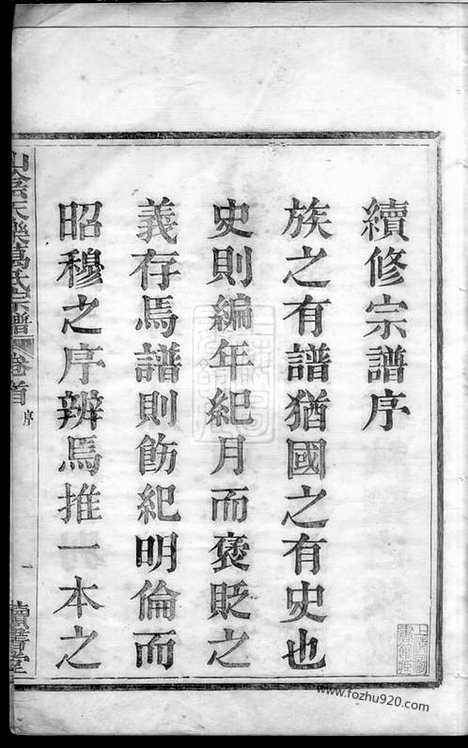 續修宗譜序
族之有譜猶國之有史也
史則編年紀月而褒貶之
義存焉譜則飭紀明倫而
昭穆之序辨焉推一本之
山陰天樂葛氏宗譜 卷首 序 一 讀書堂
www.fozhu920.com